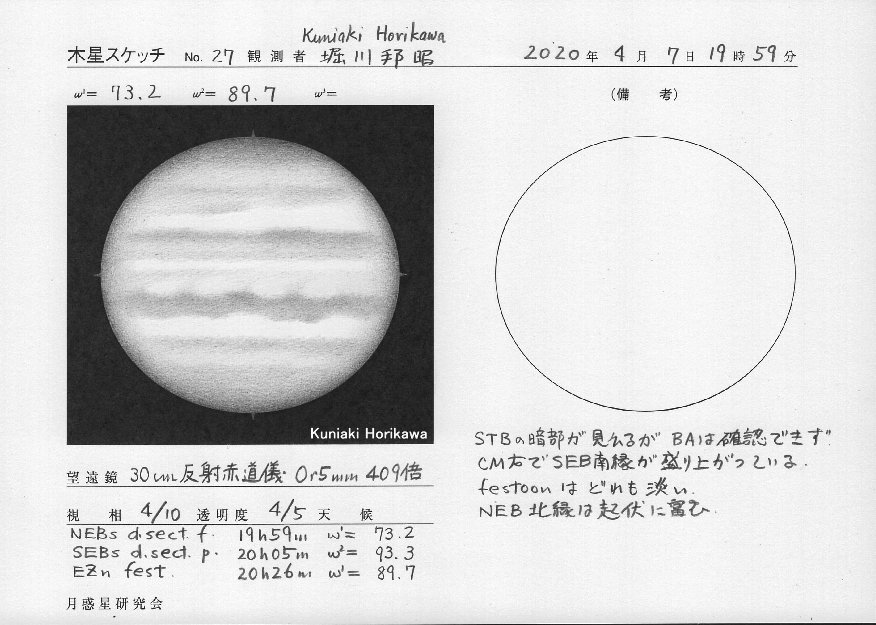 Kuniaki Horikawa
木星スケッチ No. 27 観測者 堀川邦昭 2020年 4月 7日 19時 59分
ω¹= 73.2 ω²= 89.7 ω³=
(備 考)
Kuniaki Horikawa
STBの暗部が見えるが BAは確認できず
CM右でSEB南縁が盛り上がっている.
festoonはどれも淡い.
NEB北縁は起伏に富む.
望遠鏡 30cm反射赤道儀 Or5mm 409倍
視 相 4/10 透明度 4/5 天 候
NEBs d.sect. f. 19h59m ω¹= 73.2
SEBs d.sect. p. 20h05m ω²= 93.3
EZn fest. 20h26m ω¹= 89.7
月惑星研究会